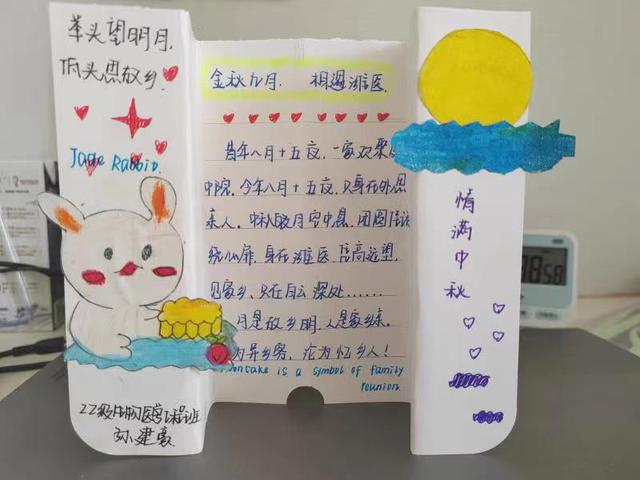 举头望明月,
低头思故乡.
Jade Rabbit
22级生物医学工程班
孙建豪
金秋九月. 相遇潍医.
昔年八月十五夜,一家欢聚
中院,今年八月十五夜,只身在外思
亲人.中秋皎月空中悬,团圆佳话
绕心扉.身在潍医,登高远望,
见家乡,只在白云深处......
月是故乡明,人是家乡亲.
为异乡客,沦为忆乡人!
ooncake is a symbol of family
reunion
情满中秋
8:58